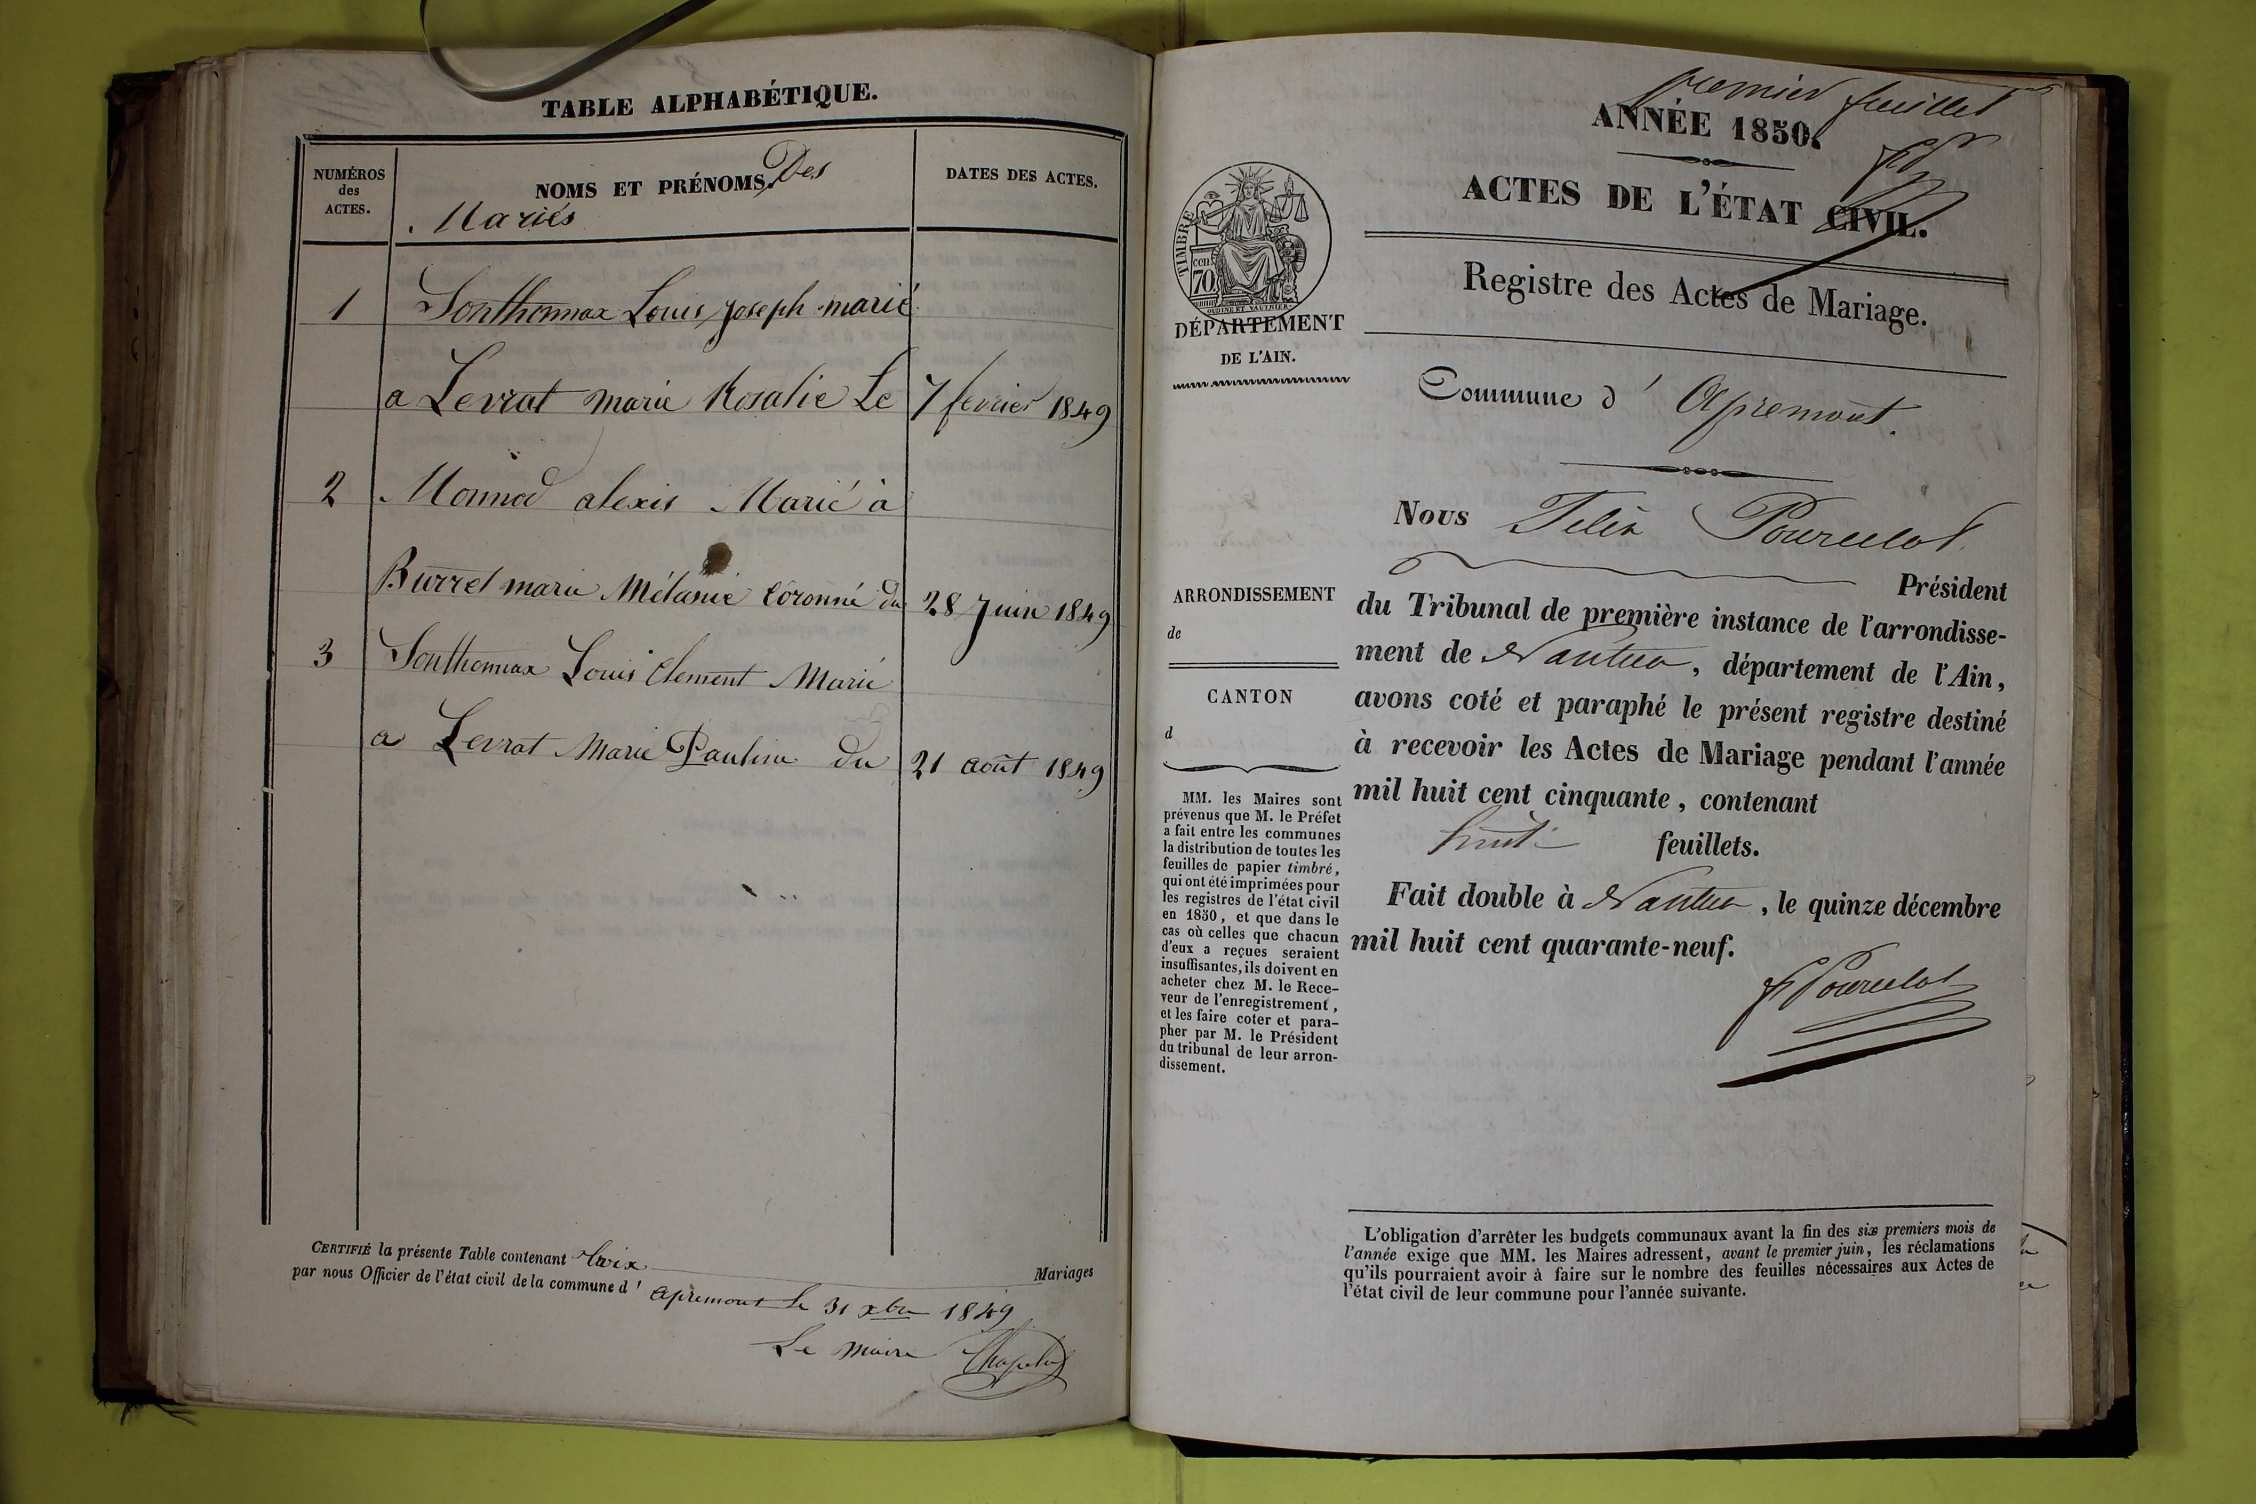 TABLE ALPHABÉTIQUE.
NUMÉROS
des
ACTES.
NOMS ET PRÉNOMS. Des
Mariés
DATES DES ACTES.
1 Sonthonnax Louis Joseph marié
a Levrat marie Rosalie Le 7 fevrier 1849
2 Monnod alexis Marié à
Burret marie Mélanie du 28 Juin 1849
3 Sonthonnax Louis Clement Marié
a Levrat Marie Pauline du 21 août 1849
CERTIFIÉ la présente Table contenant trois Mariages
par nous Officier de l'état civil de la commune d' apremont le 31 xbre 1849
Le maire
premier feuillet
ANNÉE 1850.
ACTES DE L'ÉTAT CIVIL.
Registre des Actes de Mariage.
TIMBRE
70
OUDINÉ ET VAUTHIER
DÉPARTEMENT
DE L'AIN.
Commune d' Apremont.
Nous Félix Pourcelot
Président
du Tribunal de première instance de l'arrondisse-
ment de Nantua, département de l'Ain,
avons coté et paraphé le présent registre destiné
à recevoir les Actes de Mariage pendant l'année
mil huit cent cinquante, contenant
huit feuillets.
Fait double à Nantua, le quinze décembre
mil huit cent quarante-neuf.
F Pourcelot
ARRONDISSEMENT
de
CANTON
d
MM. les Maires sont
prévenus que M. le Préfet
a fait entre les communes
la distribution de toutes les
feuilles de papier timbré,
qui ont été imprimées pour
les registres de l'état civil
en 1850, et que dans le
cas où celles que chacun
d'eux a reçues seraient
insuffisantes, ils doivent en
acheter chez M. le Rece-
veur de l'enregistrement,
et les faire coter et para-
pher par M. le Président
du tribunal de leur arron-
dissement.
L'obligation d'arrêter les budgets communaux avant la fin des six premiers mois de
l'année exige que MM. les Maires adressent, avant le premier juin, les réclamations
qu'ils pourraient avoir à faire sur le nombre des feuilles nécessaires aux Actes de
l'état civil de leur commune pour l'année suivante.